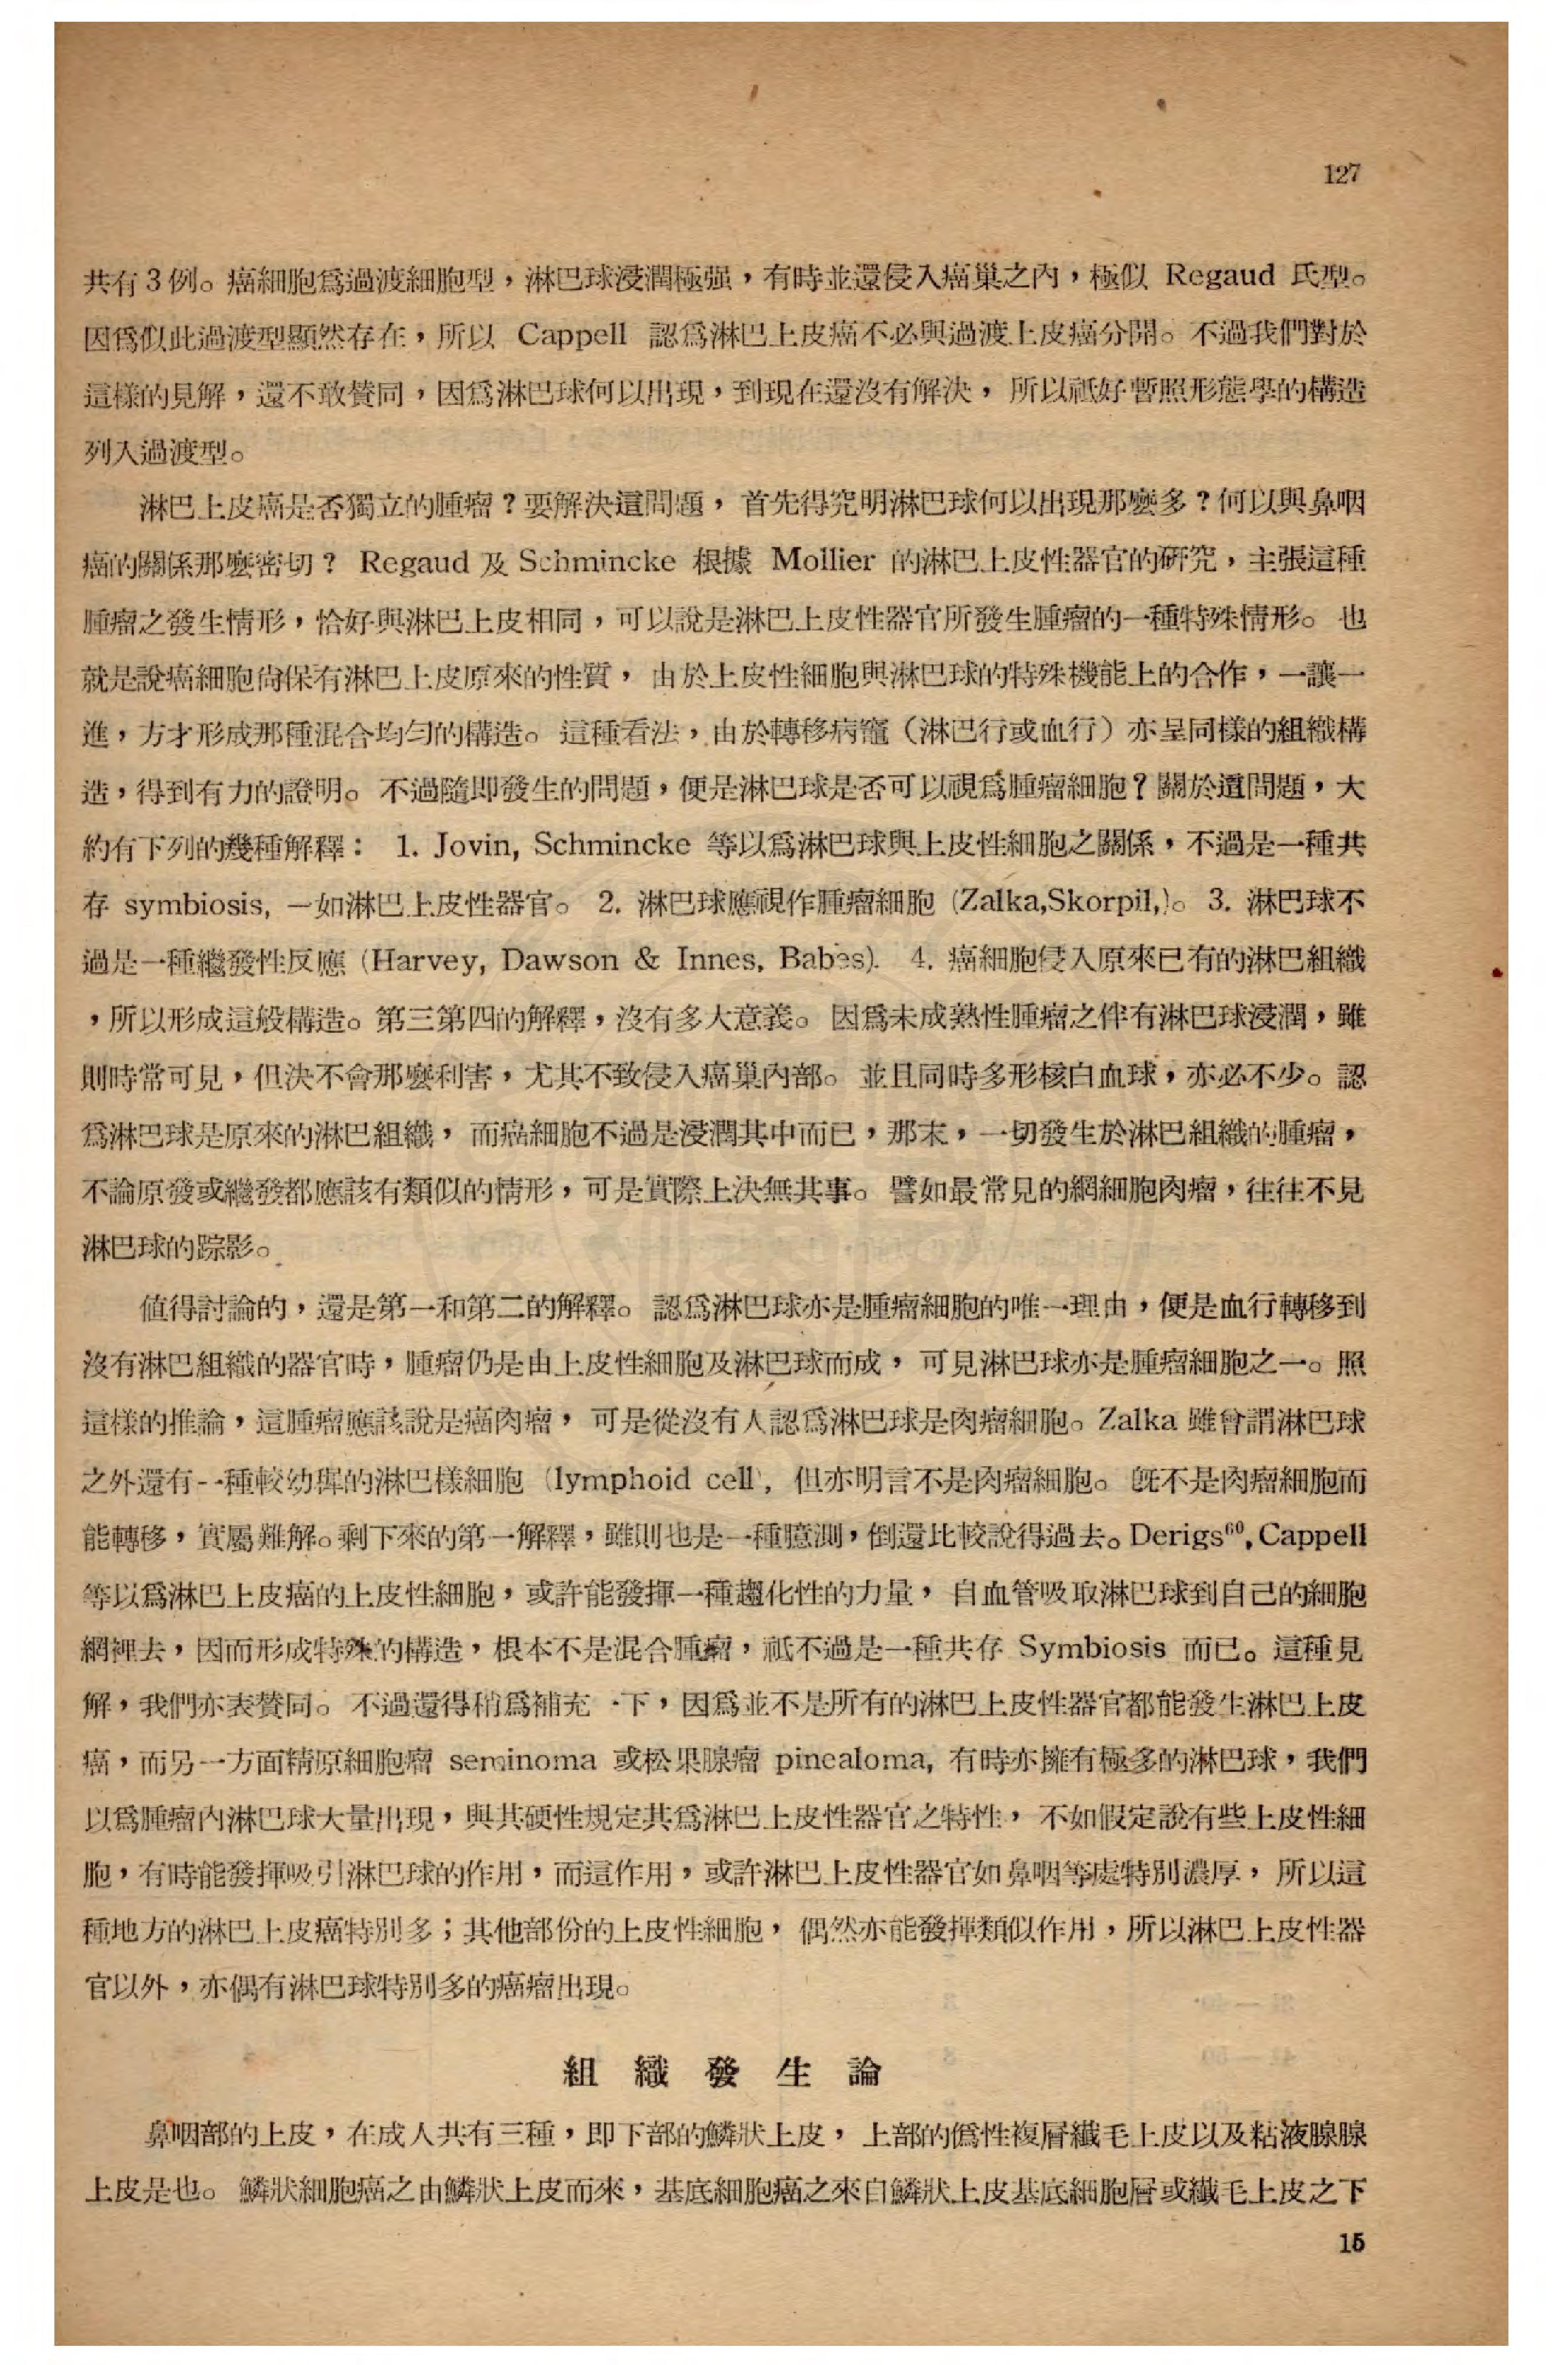 127
共有3例。癌細胞爲過渡細胞型，淋巴球浸潤極强，有時並還侵入癌巢之內，極似 Regaud 氏型。
因爲似此過渡型顯然存在，所以 Cappell 認爲淋巴上皮癌不必與過渡上皮癌分開。不過我們對於
這樣的見解，還不敢贊同，因爲淋巴球何以出現，到現在還沒有解決，所以祗好暫照形態學的構造
列入過渡型。
淋巴上皮癌是否獨立的腫瘤？要解決這問題，首先得究明淋巴球何以出現那麽多？何以與鼻咽
癌的關係那麽密切？ Regaud 及 Schmincke 根據 Mollier 的淋巴上皮性器官的研究，主張這種
腫瘤之發生情形，恰好與淋巴上皮相同，可以說是淋巴上皮性器官所發生腫瘤的一種特殊情形。也
就是說癌細胞尙保有淋巴上皮原來的性質，由於上皮性細胞與淋巴球的特殊機能上的合作，一讓一
進，方才形成那種混合均勻的構造。這種看法，由於轉移病竈（淋巴行或血行）亦呈同樣的組織構
造，得到有力的證明。不過隨即發生的問題，便是淋巴球是否可以視爲腫瘤細胞？關於這問題，大
約有下列的幾種解釋： 1. Jovin, Schmincke 等以爲淋巴球與上皮性細胞之關係，不過是一種共
存 symbiosis, 一如淋巴上皮性器官。 2. 淋巴球應視作腫瘤細胞 (Zalka,Skorpil,)。 3. 淋巴球不
過是一種繼發性反應 (Harvey, Dawson & Innes, Babes). 4. 癌細胞侵入原來已有的淋巴組織
，所以形成這般構造。第三第四的解釋，沒有多大意義。因爲未成熟性腫瘤之伴有淋巴球浸潤，雖
則時常可見，但決不會那麽利害，尤其不致侵入癌巢內部。並且同時多形核白血球，亦必不少。認
爲淋巴球是原來的淋巴組織，而癌細胞不過是浸潤其中而已，那末，一切發生於淋巴組織的腫瘤，
不論原發或繼發都應該有類似的情形，可是實際上決無其事。譬如最常見的網細胞肉瘤，往往不見
淋巴球的踪影。
值得討論的，還是第一和第二的解釋。認爲淋巴球亦是腫瘤細胞的唯一理由，便是血行轉移到
沒有淋巴組織的器官時，腫瘤仍是由上皮性細胞及淋巴球而成，可見淋巴球亦是腫瘤細胞之一。照
這樣的推論，這腫瘤應該說是癌肉瘤，可是從沒有人認爲淋巴球是肉瘤細胞。Zalka 雖曾謂淋巴球
之外還有一種較幼穉的淋巴樣細胞 (lymphoid cell), 但亦明言不是肉瘤細胞。旣不是肉瘤細胞而
能轉移，實屬難解。剩下來的第一解釋，雖則也是一種臆測，倒還比較說得過去。Derigs⁶⁰, Cappell
等以爲淋巴上皮癌的上皮性細胞，或許能發揮一種趨化性的力量，自血管吸取淋巴球到自己的細胞
網裡去，因而形成特殊的構造，根本不是混合腫瘤，祗不過是一種共存 Symbiosis 而已。這種見
解，我們亦表贊同。不過還得稍爲補充一下，因爲並不是所有的淋巴上皮性器官都能發生淋巴上皮
癌，而另一方面精原細胞瘤 seminoma 或松果腺瘤 pinealoma, 有時亦擁有極多的淋巴球，我們
以爲腫瘤內淋巴球大量出現，與其硬性規定其爲淋巴上皮性器官之特性，不如假定說有些上皮性細
胞，有時能發揮吸引淋巴球的作用，而這作用，或許淋巴上皮性器官如鼻咽等處特別濃厚，所以這
種地方的淋巴上皮癌特別多；其他部份的上皮性細胞，偶然亦能發揮類似作用，所以淋巴上皮性器
官以外，亦偶有淋巴球特別多的癌瘤出現。
組織發生論
鼻咽部的上皮，在成人共有三種，即下部的鱗狀上皮，上部的僞性複層纖毛上皮以及粘液腺腺
上皮是也。鱗狀細胞癌之由鱗狀上皮而來，基底細胞癌之來自鱗狀上皮基底細胞層或纖毛上皮之下
15